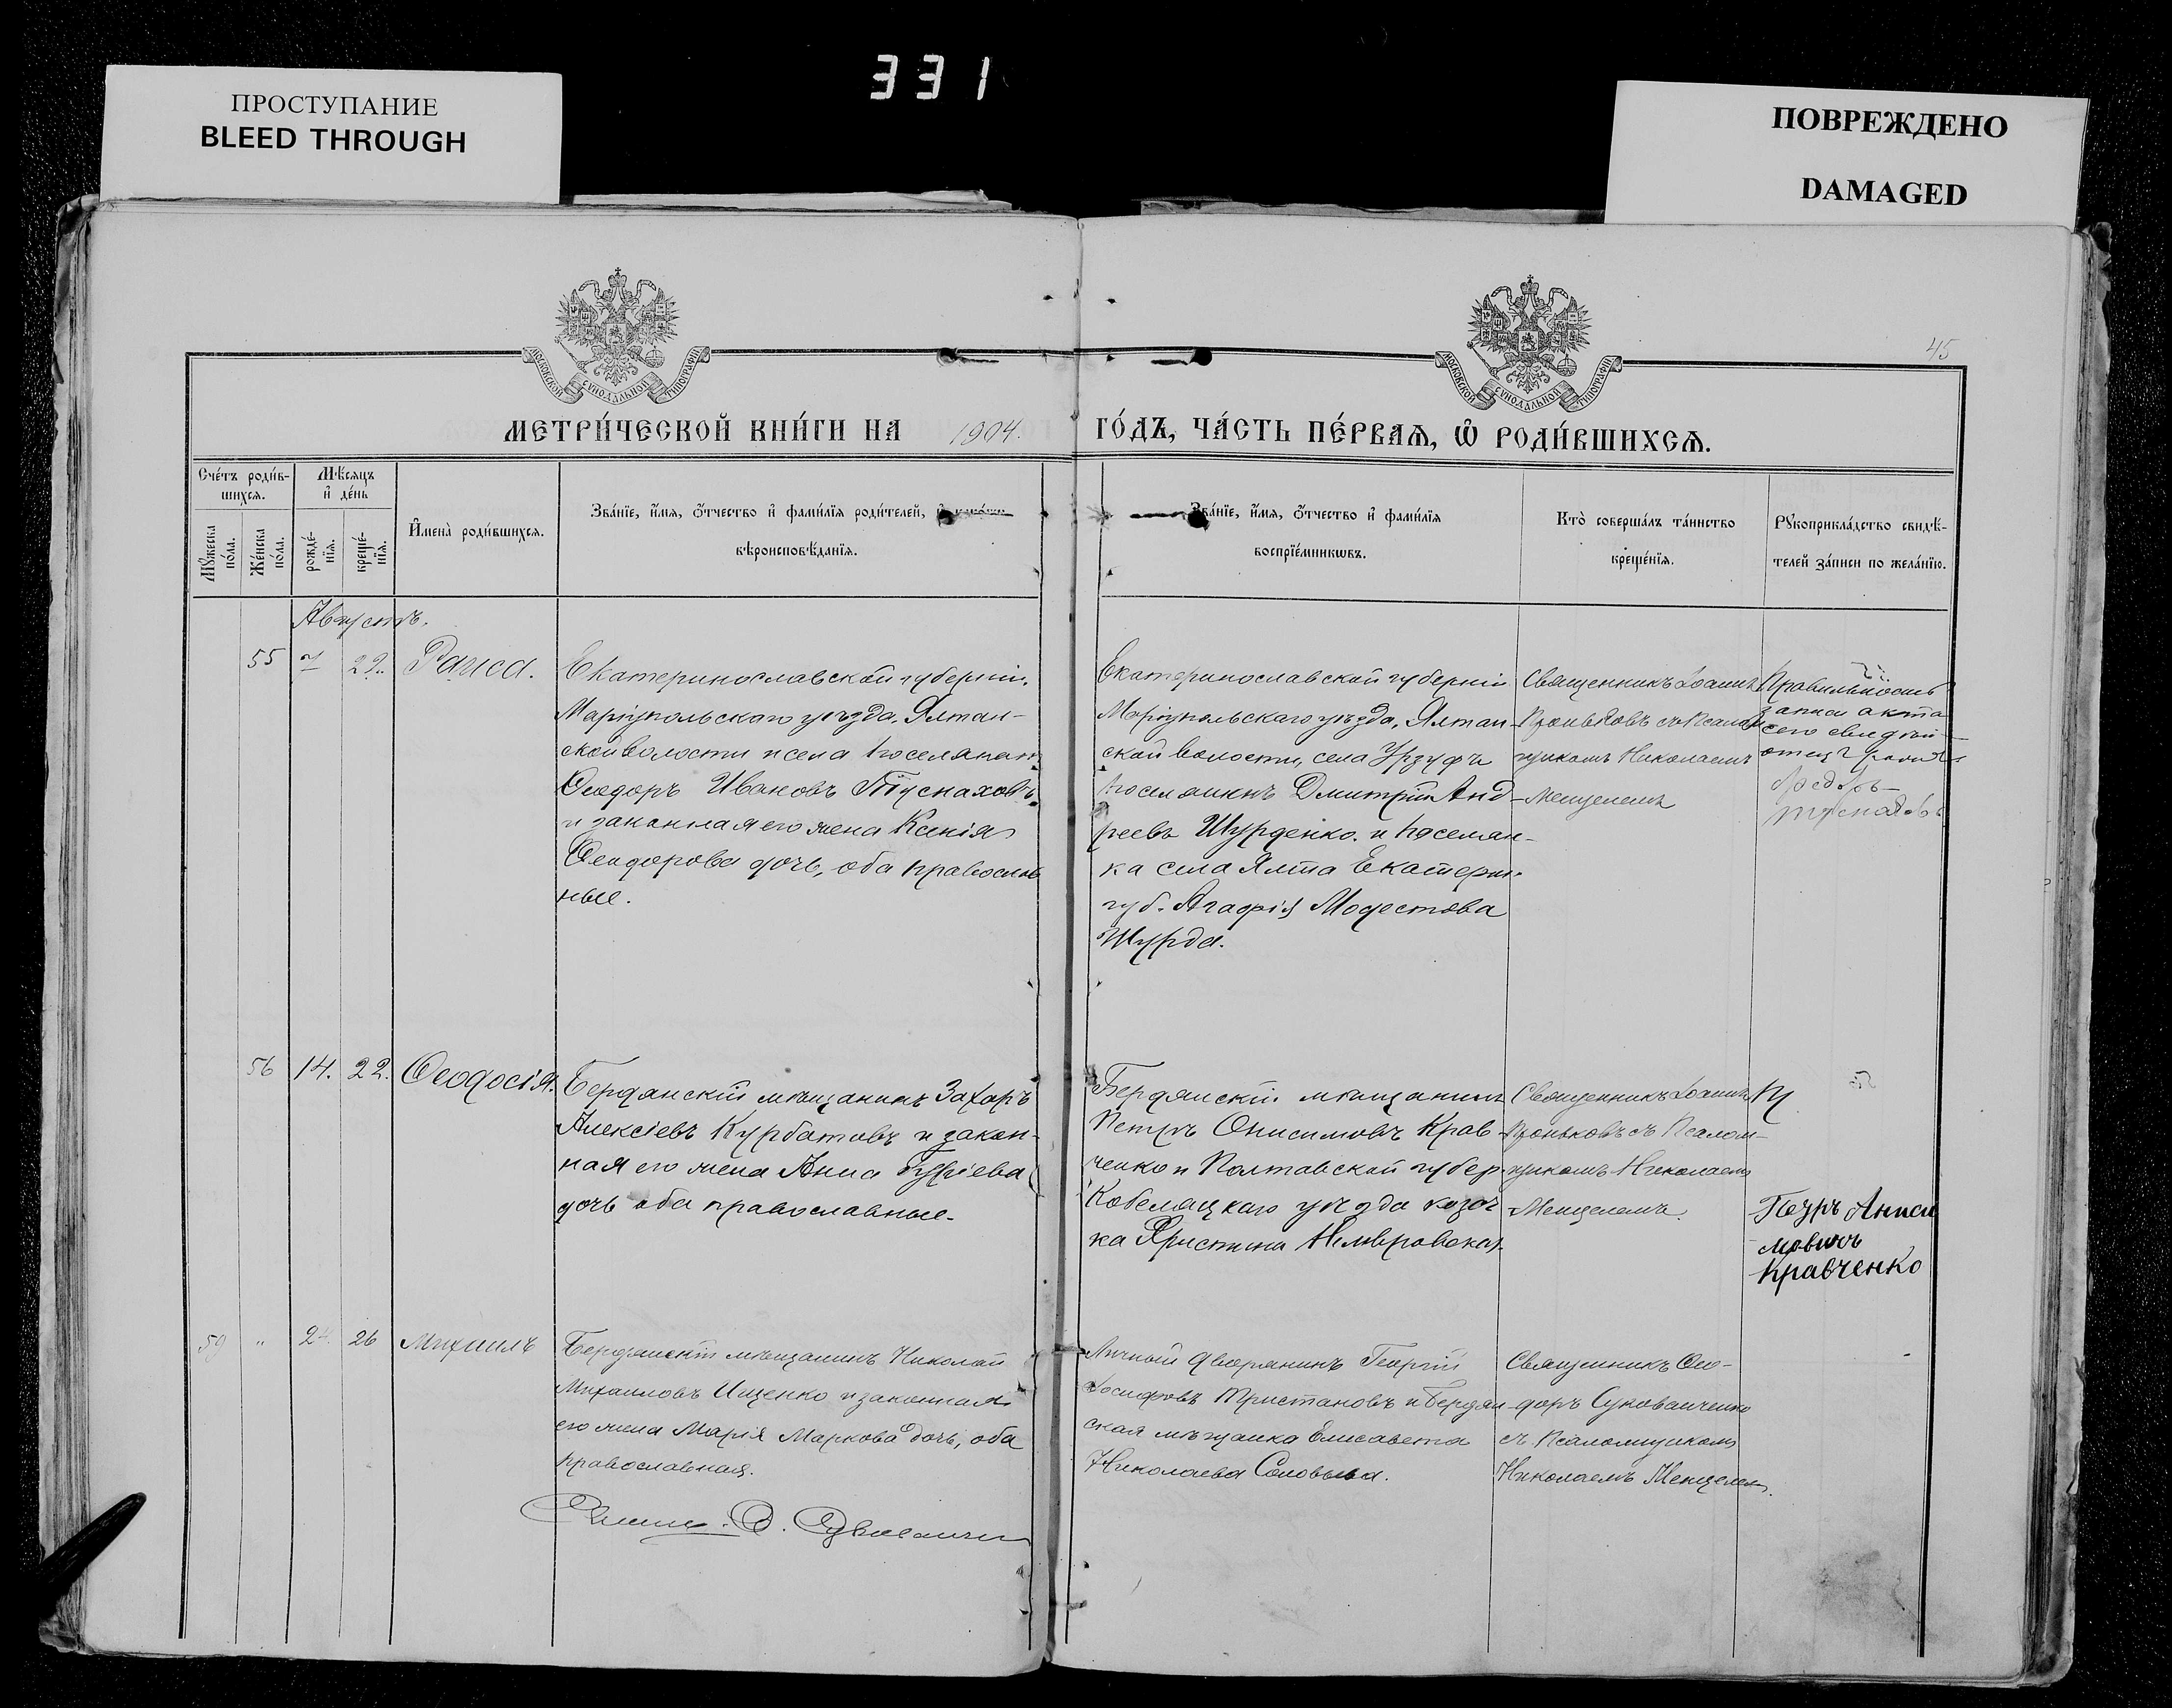 331
ПРОСТУПАНИЕ
BLEED THROUGH
ПОВРЕЖДЕНО
DAMAGED
МОСКОВСКОЙ СѴНОДАЛЬНОЙ ТИПОГРАФІИ
МОСКОВСКОЙ СѴНОДАЛЬНОЙ ТИПОГРАФІИ
45
МЕТРИ́ЧЕСКОЙ КНИ́ГИ НА 1904. ГО́ДЪ, ЧА́СТЬ ПЕ́РВАѦ, Ѽ РОДИ́ВШИХСѦ.
Сче́тъ роди́в-
шихсѧ.
Мѣ́сѧцъ
и҆ де́нь
Мꙋ́жеска
по́ла.
Же́нска
по́ла.
рожде́-
нїѧ.
креще́-
нїѧ.
И҆мена̀ роди́вшихсѧ.
Зва́нїе, и҆́мѧ, ѻ҆́тчество и҆ фами́лїѧ роди́телей,
вѣроисповѣ́данїѧ.
Зва́нїе, и҆́мѧ, ѻ҆́тчество и҆ фами́лїѧ
воспрїе́мникѡвъ.
Кто̀ соверша́лъ та́инство
креще́нїѧ.
Рꙋкоприкла́дство свидѣ́-
телей за́писи по жела́нїю.
Августъ.
55 7 22. Раиса.
Екатеринославской губерніи.
Маріупольскаго уѣзда, Ялтан-
ской волости и села поселянинъ
Ѳеодоръ Ивановъ Тіуснаховъ
и законная его жена Ксенія
Ѳеодорова дочь, оба православ
ные.
Екатеринославской губерніи
Маріупольскаго уѣзда, Ялтан-
ской волости, села Урзуфъ
поселянинъ Дмитрій Анд-
реевъ Шурденко. и поселян-
ка села Ялта Екатерин.
губ. Агафія Модестова
Шурда.
Священникъ Іоаннъ
съ Псалом
щикомъ Николаемъ
Менцелемъ
Правильность
записи акта
сего свидѣт
отецъ
56 14. 22. Ѳеодосія.
Бердянскій мѣщанинъ Захаръ
Алексіевъ Курбатовъ и закон-
ная его жена Анна Гуріева
дочь оба православные.
Бердянскій мѣщанинъ
Петръ Онисимовъ Крав-
ченко и Полтавской губер.
Кобеляцкаго уѣзда козач
ка Христина
Священникъ Іоаннъ
съ Псалом-
щикомъ Николаемъ
Менцелемъ.
Петръ Аниси
мовичъ
Кравченко
59 " 24. 26 Михаилъ
Бердянскій мѣщанинъ Николай
Михаиловъ Ищенко и законная
его жена Марія Маркова дочь, оба
православная.
Личный дворянинъ Георгій
Іосифовъ Тристановъ и Бердян-
ская мѣщанка Елисавета
Николаева Соловьева.
Священникъ Ѳео-
доръ Сукованченко
съ Псаломщикомъ
Николаемъ Менцелем.